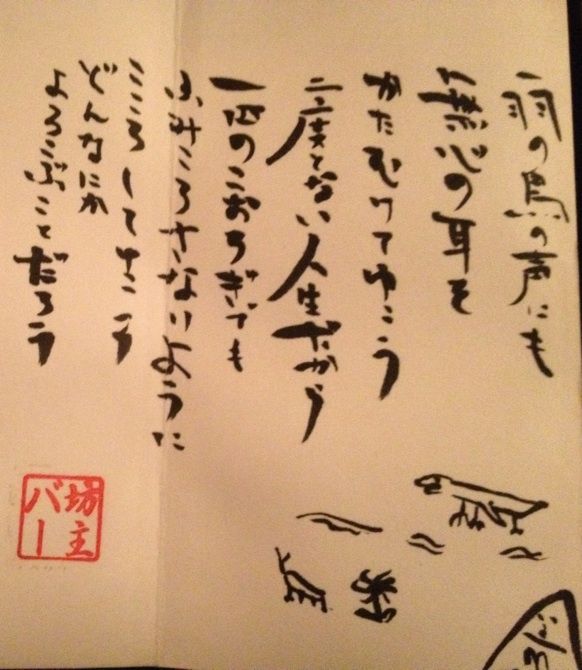 一羽の鳥の声にも
無心の耳を
かたむけてゆこう
二度とない人生だから
一匹のこおろぎでも
ふみころさないように
こころしてゆこう
どんなにか
よろこぶことだろう
坊主
バー